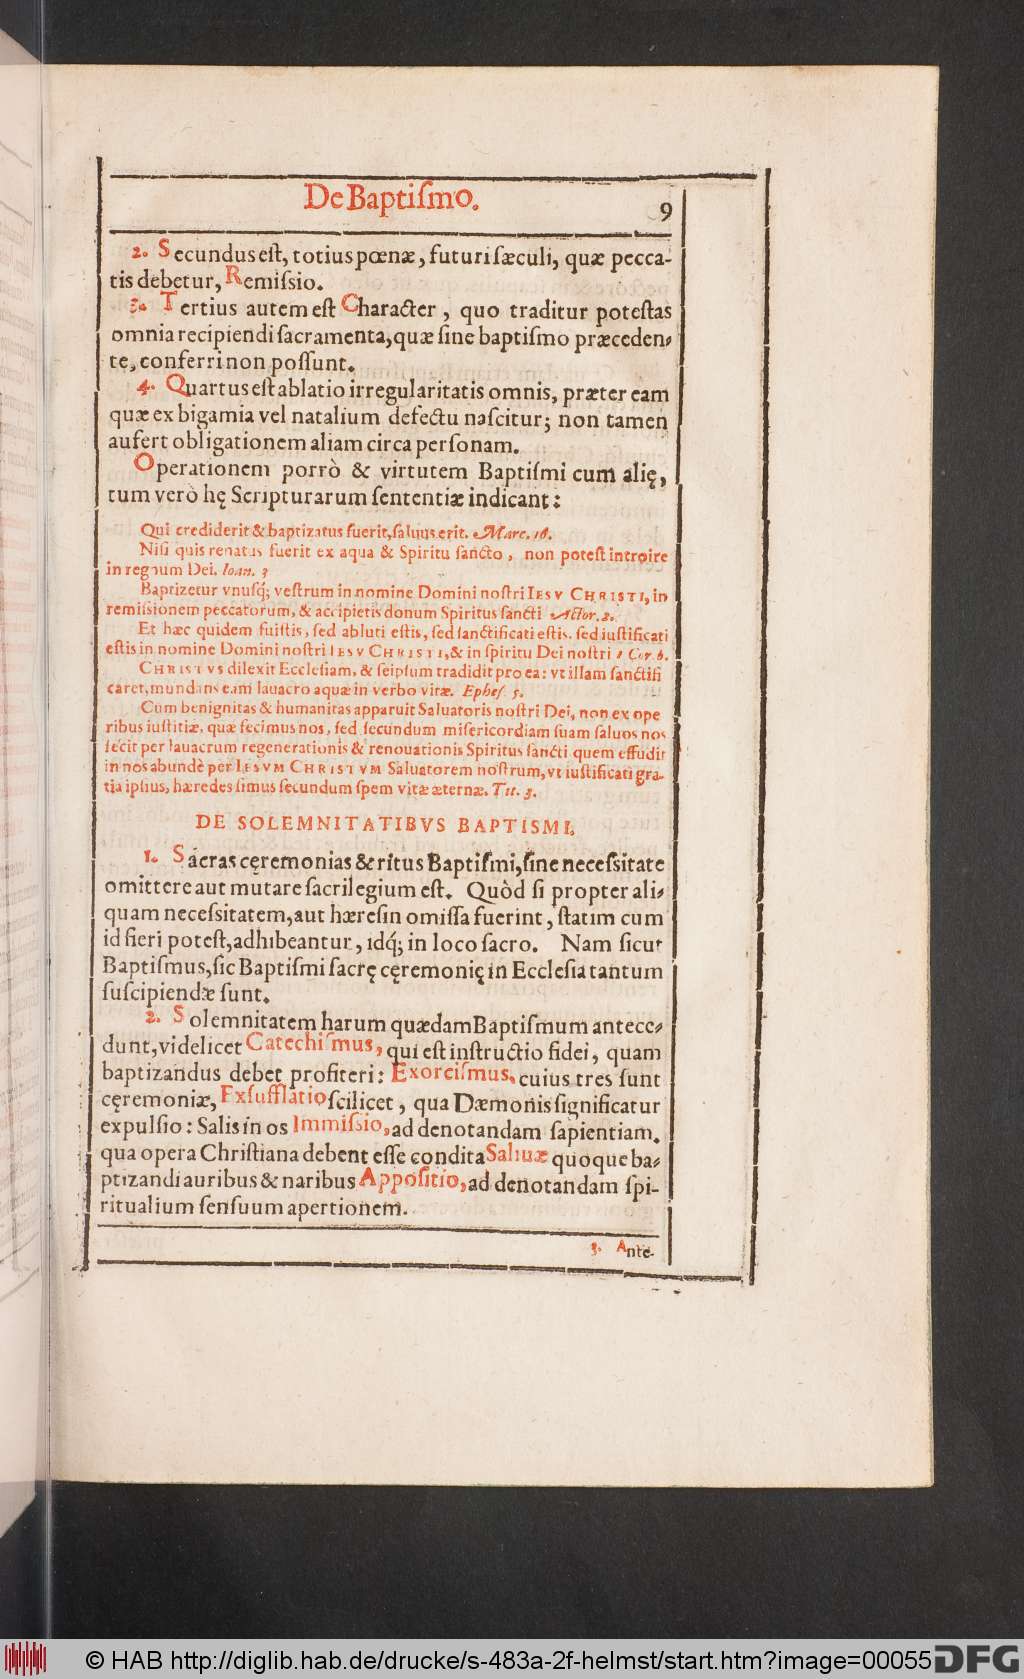 De Baptiſmo.
9
2. Secundus eſt, totius pœnæ, futuri ſæculi, quæ pecca-
tis debetur, Remiſsio.
3. Tertius autem eſt Character, quo traditur poteſtas
omnia recipiendi ſacramenta, quæ ſine baptiſmo præceden-
te, conferri non poſſunt.
4. Quartus eſt ablatio irregularitatis omnis, præter eam
quæ ex bigamia vel natalium defectu naſcitur; non tamen
aufert obligationem aliam circa perſonam.
Operationem porrò & virtutem Baptiſmi cum alię,
tum verò hę Scripturarum ſententiæ indicant:
Qui crediderit & baptizatus fuerit, ſaluus erit. Marc. 16.
Niſi quis renatus fuerit ex aqua & Spiritu ſancto, non poteſt introire
in regnum Dei. Ioan. 3
Baptizetur vnuſq́; veſtrum in nomine Domini noſtri IESV CHRISTI, in
remiſsionem peccatorum, & accipietis donum Spiritus ſancti Actor. 2.
Et hæc quidem fuiſtis, ſed abluti eſtis, ſed ſanctificati eſtis, ſed iuſtificati
eſtis in nomine Domini noſtri IESV CHRISTI, & in ſpiritu Dei noſtri 1 Cor. 6.
CHRISTVS dilexit Eccleſiam, & ſeipſum tradidit pro ea: vt illam ſanctifi
caret, mundans eam lauacro aquæ in verbo vitæ. Epheſ. 5.
Cum benignitas & humanitas apparuit Saluatoris noſtri Dei, non ex ope
ribus iuſtitiæ, quæ fecimus nos, ſed ſecundum miſericordiam ſuam ſaluos nos
fecit per lauacrum regenerationis & renouationis Spiritus ſancti quem effudit
in nos abundè per IESVM CHRISTVM Saluatorem noſtrum, vt iuſtificati gra-
tia ipſius, hæredes ſimus ſecundum ſpem vitæ æternæ. Tit. 3.
DE SOLEMNITATIBVS BAPTISMI.
1. Sacras cęremonias & ritus Baptiſmi, ſine neceſsitate
omittere aut mutare ſacrilegium eſt. Quòd ſi propter ali-
quam neceſsitatem, aut hæreſin omiſſa fuerint, ſtatim cum
id fieri poteſt, adhibeantur, idq́; in loco ſacro. Nam ſicut
Baptiſmus, ſic Baptiſmi ſacrę cęremonię in Eccleſia tantum
ſuſcipiendæ ſunt.
2. Solemnitatem harum quædam Baptiſmum antece-
dunt, videlicet Catechiſmus, qui eſt inſtructio fidei, quam
baptizandus debet profiteri: Exorciſmus, cuius tres ſunt
cęremoniæ, Exſufflatio ſcilicet, qua Dæmonis ſignificatur
expulſio: Salis in os Immiſsio, ad denotandam ſapientiam,
qua opera Chriſtiana debent eſſe condita Saliuæ quoque ba-
ptizandi auribus & naribus Appoſitio, ad denotandam ſpi-
ritualium ſenſuum apertionem.
3. Ante-
© HAB http://diglib.hab.de/drucke/s-483a-2f-helmst/start.htm?image=00055
DFG